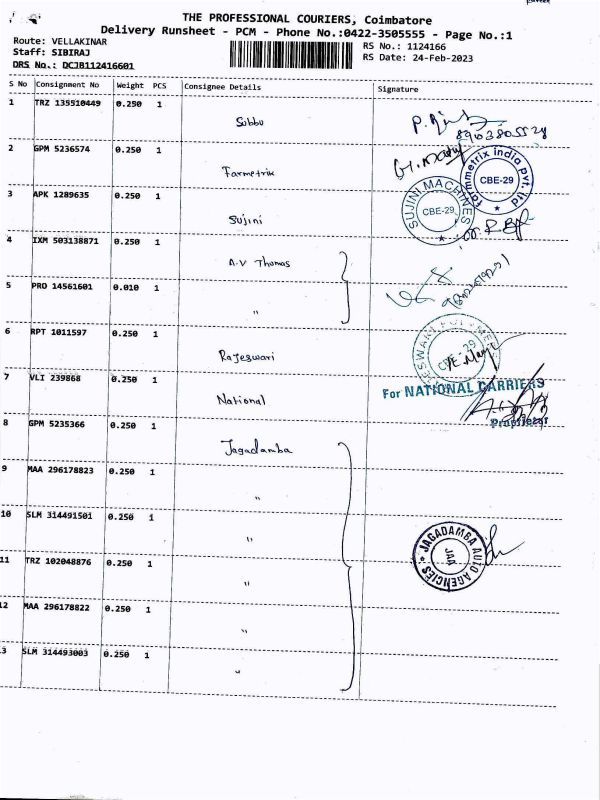 THE PROFESSIONAL COURIERS, Coimbatore
Delivery Runsheet - PCM - Phone No.:0422-3505555 - Page No.:1
Route: VELLAKINAR
RS No.: 1124166
Staff: SIBIRAJ
RS Date: 24-Feb-2023
DRS No.: DCJB112416601
S No Consignment No Weight PCS Consignee Details Signature
1 TRZ 135510449 0.250 1
Subbu
2 GPM 5236574 0.250 1
Farmetrik
farmmetrix india pvt. ltd
CBE-29
3 APK 1289635 0.250 1
Sujini
SUJINI MACHINES
CBE-29
4 IXM 503138871 0.250 1
A.V Thomas
5 PRO 14561601 0.010 1
"
6 RPT 1011597 0.250 1
Rajeswari
CBE-29
7 VLI 239868 0.250 1
National
For NATIONAL CARRIERS
Proprietor
8 GPM 5235366 0.250 1
Jagadamba
9 MAA 296178823 0.250 1
"
10 SLM 314491501 0.250 1
"
JAGADAMBA AUTO AGENCIES
JAA
11 TRZ 102048876 0.250 1
"
2 MAA 296178822 0.250 1
"
3 SLM 314493003 0.250 1
"